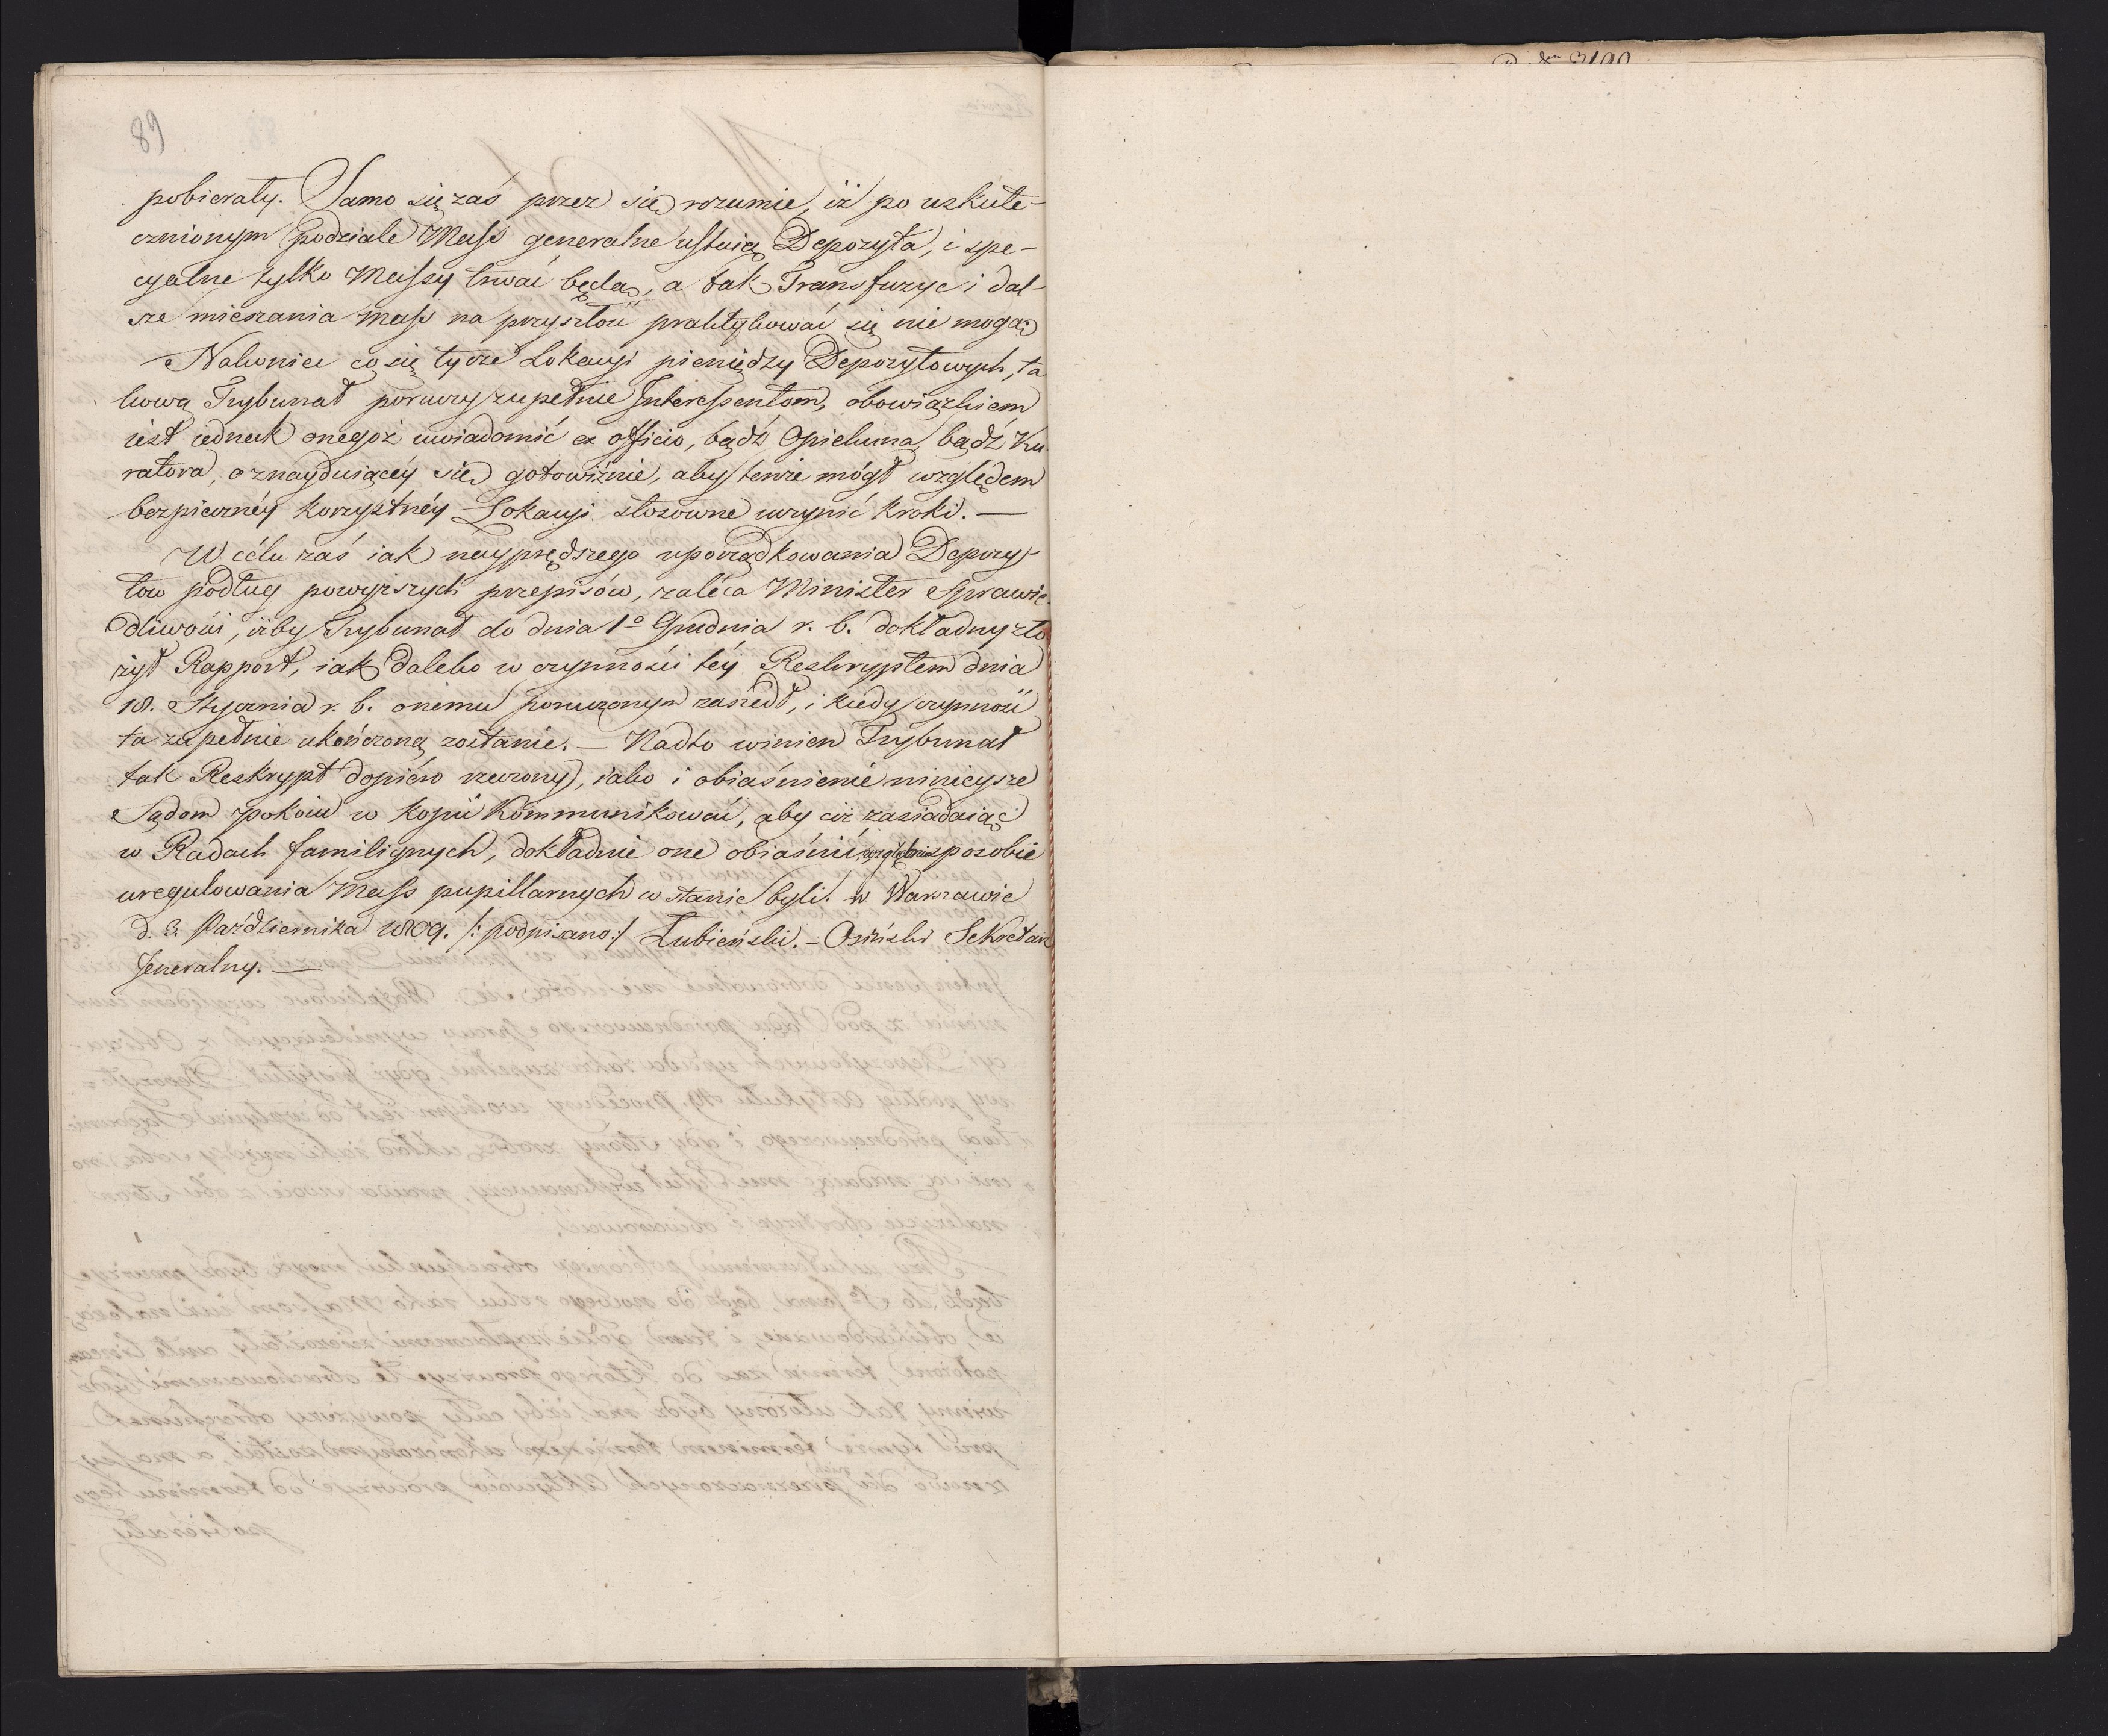 89
pobierały. Samo się zaś przez się rozumie, iż po uskute-
cznionym podziale Mass generalne ustaią Depozyta, i spe-
cyalne tylko Massy trwać będą, a tak Transfuzye i dal-
sze mieszania mass na przyszłość praktykować się nie mogą.
Nakoniec co się tycze Lokacyi pieniędzy Depozytowych, ta
kową Trybunał poruczy zupełnie Interessentom, obowiązkiem
iest iednak onegoż uwiadomić ex officio, bądź Opiekuna bądź Ku
ratora, o znayduiącéy się gotowiźnie, aby tenże mógł względem
bezpiecznéy korzystnéy Lokacyi stosowne uczynić kroki. —
W célu zaś iak nayprędszego uporządkowania Depozy-
tów podług powyższych przepisów, zaléca Minister Sprawie-
dliwości, iżby Trybunał do dnia 1o Grudnia r. b. dokładny zło
żył Rapport, iak daleko w czynności téy Reskryptem dnia
18. Stycznia r. b. onemu poruczonym zaszedł, i kiedy czynność
ta zupełnie ukończoną zostanie. — Nadto winien Trybunał
tak Reskrypt dopiéro rzeczony, iako i obiaśnienie ninieysze
Sądom pokoiu w kopii kommunikować, aby ciż zasiadaiąc
w Radach familiynych, dokładnie one obiaśnić względnie sposobie
uregulowania Mass pupillarnych w stanie byli. w Warszawie
d. 3. Października 1809. /: podpisano :/ Łubieński. - Osiński Sekretarz
Jeneralny. —